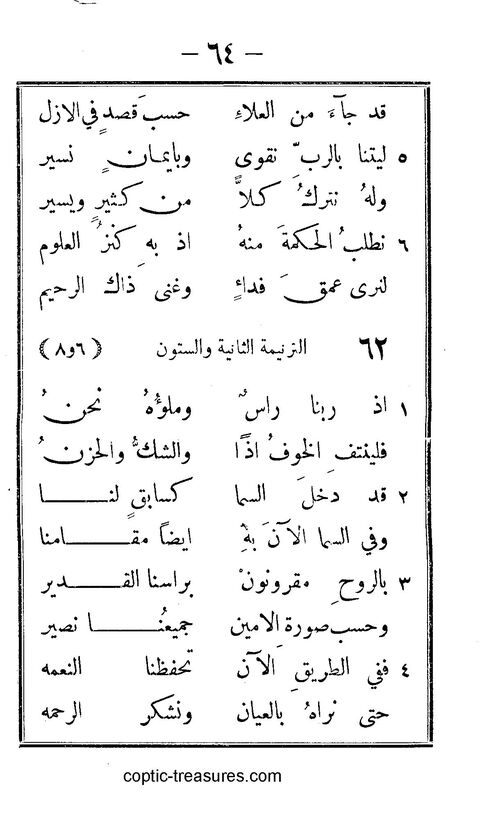 – ٦٤ –
قد جآءَ من العلاءِ حسبَ قصدٍ في الازل
٥ ليتنا بالربِّ نقوى وبايمانٍ نسير
ولهُ نتركُ كلاًّ من كثيرٍ ويسير
٦ نطلبُ الحكمةَ منهُ اذ بهِ كنزُ العلوم
لنرى عمقَ فداءٍ وغنى ذاكَ الرحيم
٦٢ الترنيمة الثانية والستون (٦و٨)
١ اذ ربنا راسٌ وملؤُهُ نحنُ
فلينتفِ الخوفُ اذًا والشكُّ والحزنُ
٢ قد دخلَ السما كسابقٍ لنا
وفي السما الآنَ بهِ ايضاً مقامنا
٣ بالروحِ مقرونونْ براسنا القدير
وحسب صورة الامينِ جميعُنا نصير
٤ ففي الطريقِ الآن تحفظنا النعمه
حتى نراهُ بالعيان ونشكر الرحمه
coptic-treasures.com